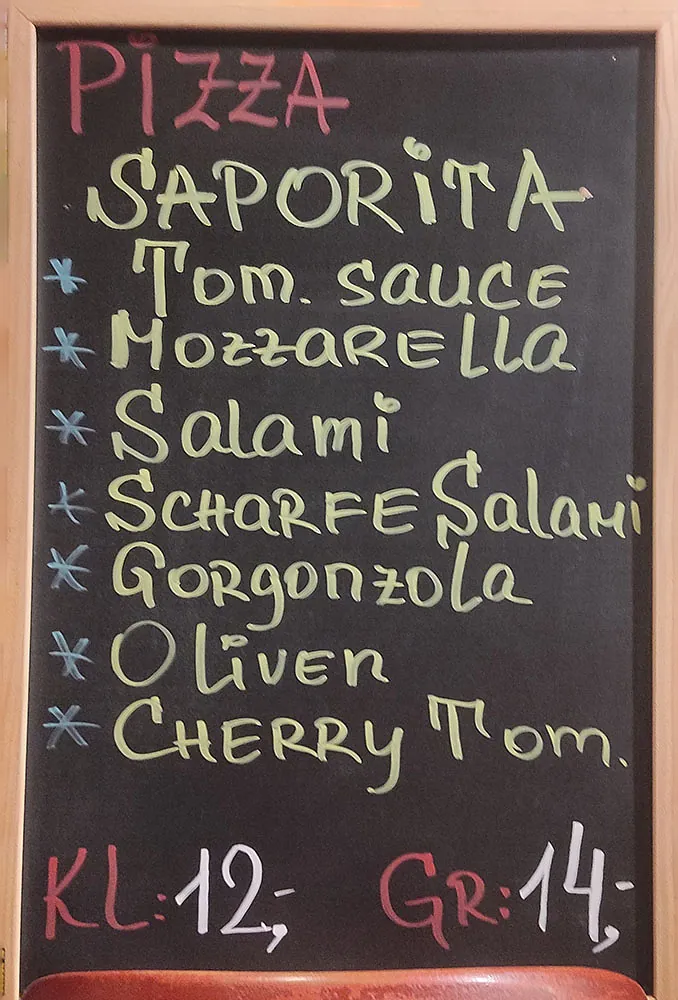 PiZZA
SAPORiTA
* Tom. SAUCE
* MOZZARELLA
* Salami
* SCHARFE Salami
* Gorgonzola
* Oliven
* CHERRY Tom.
KL: 12,- GR: 14,-